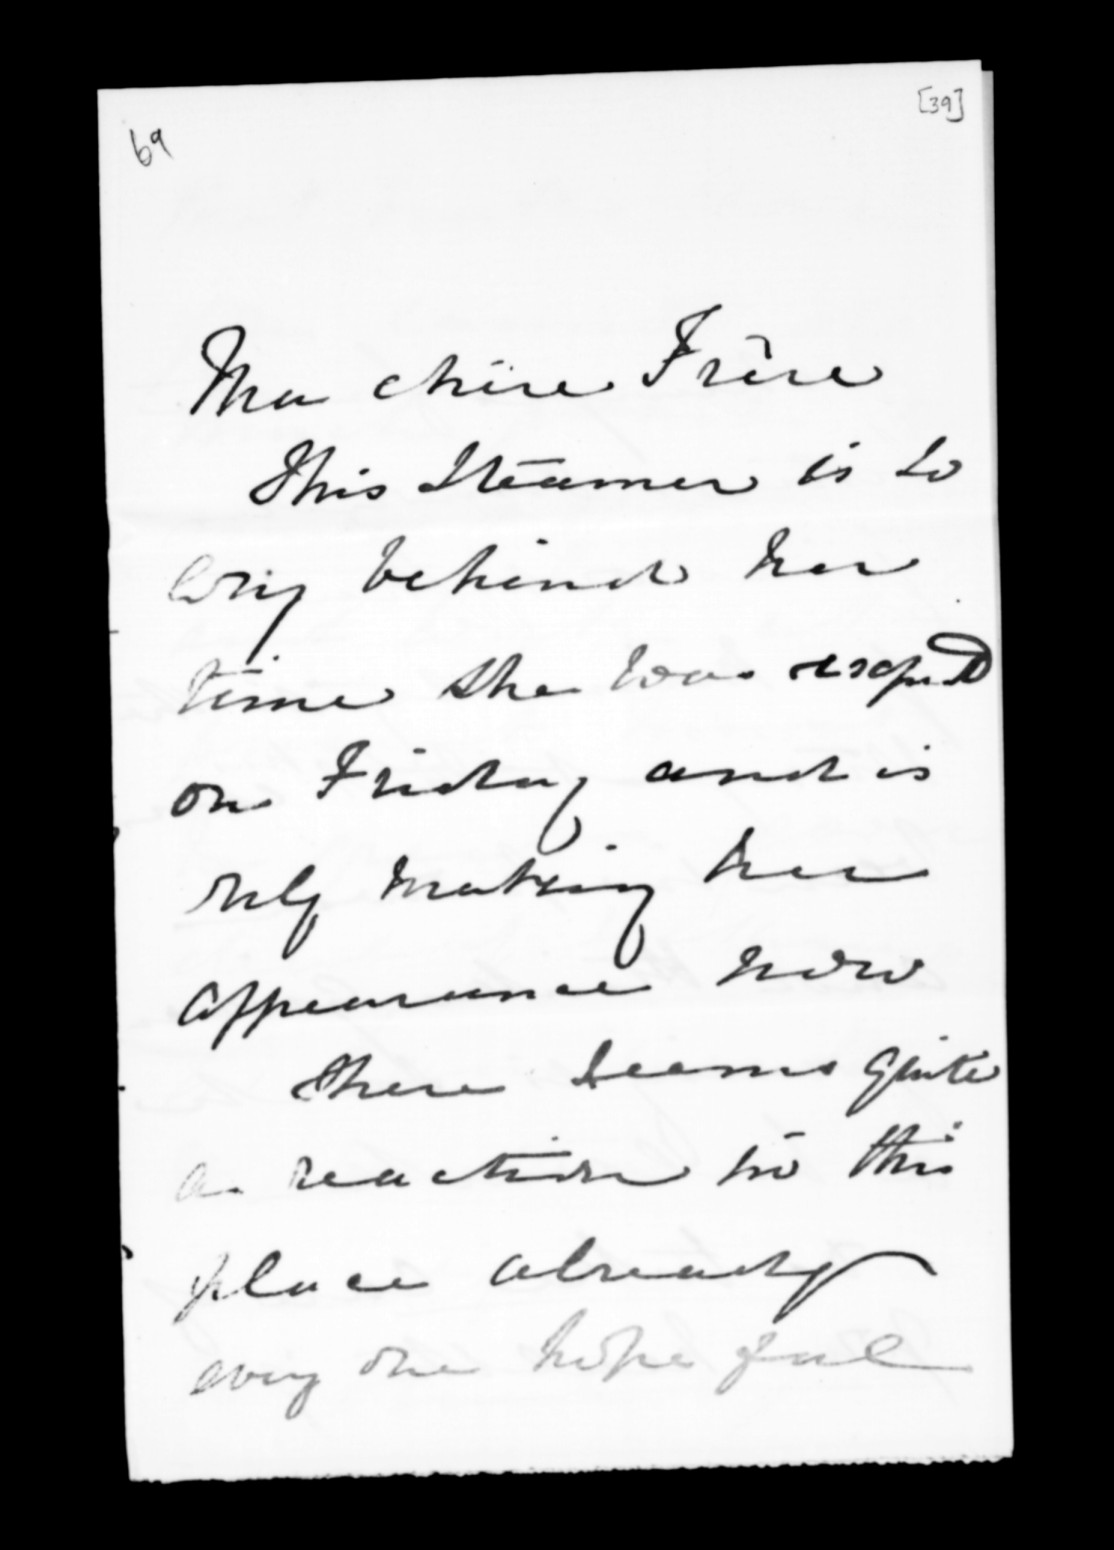 [39]
69
Ma chère Frère
This Steamer is so
long behind her
time she was expctd
on Friday and is
only making her
appearance now
there seems quite
a reaction in this
place already
every one hopeful